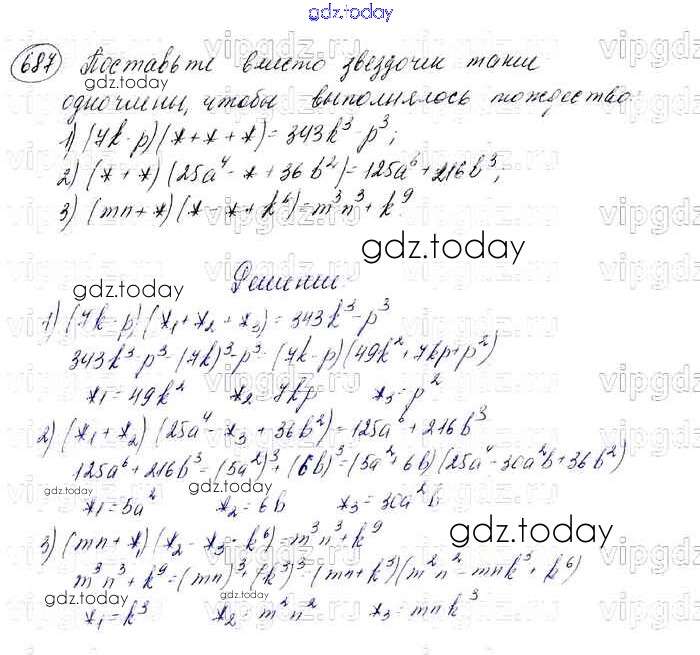 gdz.today
687 Поставьте вместо звездочек такие
одночлены, чтобы выполнялось тождество:
1) (7k-p)(*+*+*)=343k³-p³;
2) (*+*)(25a⁴-*+36b²)=125a⁶+216b³;
3) (mn+*)(*-*+k⁶)=m³n³+k⁹.
gdz.today
Решение
1) (7k-p)(*₁+*₂+*₃)=343k³-p³
343k³-p³=(7k)³-p³=(7k-p)(49k²+7kp+p²)
*₁=49k² *₂=7kp *₃=p²
2) (*₁+*₂)(25a⁴-*₃+36b²)=125a⁶+216b³
125a⁶+216b³=(5a²)³+(6b)³=(5a²+6b)(25a⁴-30a²b+36b²)
*₁=5a² *₂=6b *₃=30a²b
3) (mn+*₁)(*₂-*₃+k⁶)=m³n³+k⁹
m³n³+k⁹=(mn)³+(k³)³=(mn+k³)(m²n²-mnk³+k⁶)
*₁=k³ *₂=m²n² *₃=mnk³